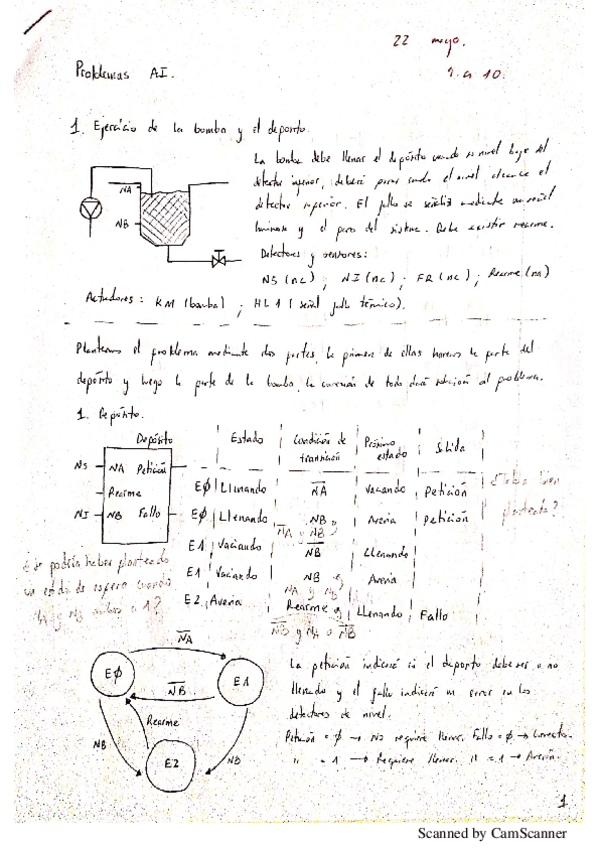 22 mayo.
Problemas AI.
1 a 10.
1. Ejercicio de la bomba y el deposito.
La bomba debe llenar el depósito cuando su nivel baje del
detector inferior, deberá parar cuando el nivel alcance el
detector superior. El fallo se señaliza mediante un señal
luminosa y el paro del sistema. Debe existir rearme.
Detectores y sensores:
NS (nc) ; NI (nc) ; FR (nc) ; Rearme (na)
Actuadores: KM (bomba) ; HL1 (señal fallo térmico).
NA
NB
Planteamos el problema mediante dos partes, la primera de ellas haremos la parte del
depósito y luego la parte de la bomba, la de todo dará solución al problema.
1. Depósito.
Depósito
NS NA Petición
Rearme
NI NB Fallo
Estado Condición de transición Próximo estado Salida
EØ Llenando NA Vaciando Petición
EØ Llenando NB Avería Petición
NA y NB
E1 Vaciando NB Llenando
E1 Vaciando NB Avería
NA y NB
E2 Avería Rearme Llenando Fallo
NB y NA o NB
¿Se podría haber planteado
un estado de espera cuando
NA y NB ambos a 1?
planteada?
NA
EØ
E1
NB
Rearme
NB
NB
E2
La petición indicará si el deposito debe ser o no
llenado y el fallo indicará un error en los
detectores de nivel.
Petición = Ø → No requiere llenar. Fallo = Ø → Correcto.
" = 1 → Requiere llenar. " = 1 → Avería.
1
Scanned by CamScanner